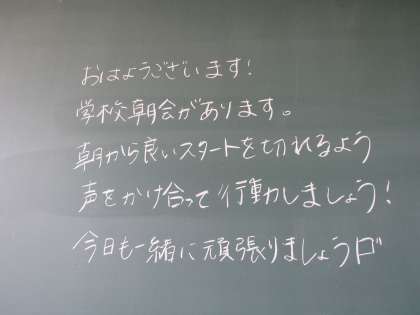 おはようございます!
学校朝会があります。
朝から良いスタートを切れるよう
声をかけ合って行動しましょう!
今日も一緒に頑張りましょう